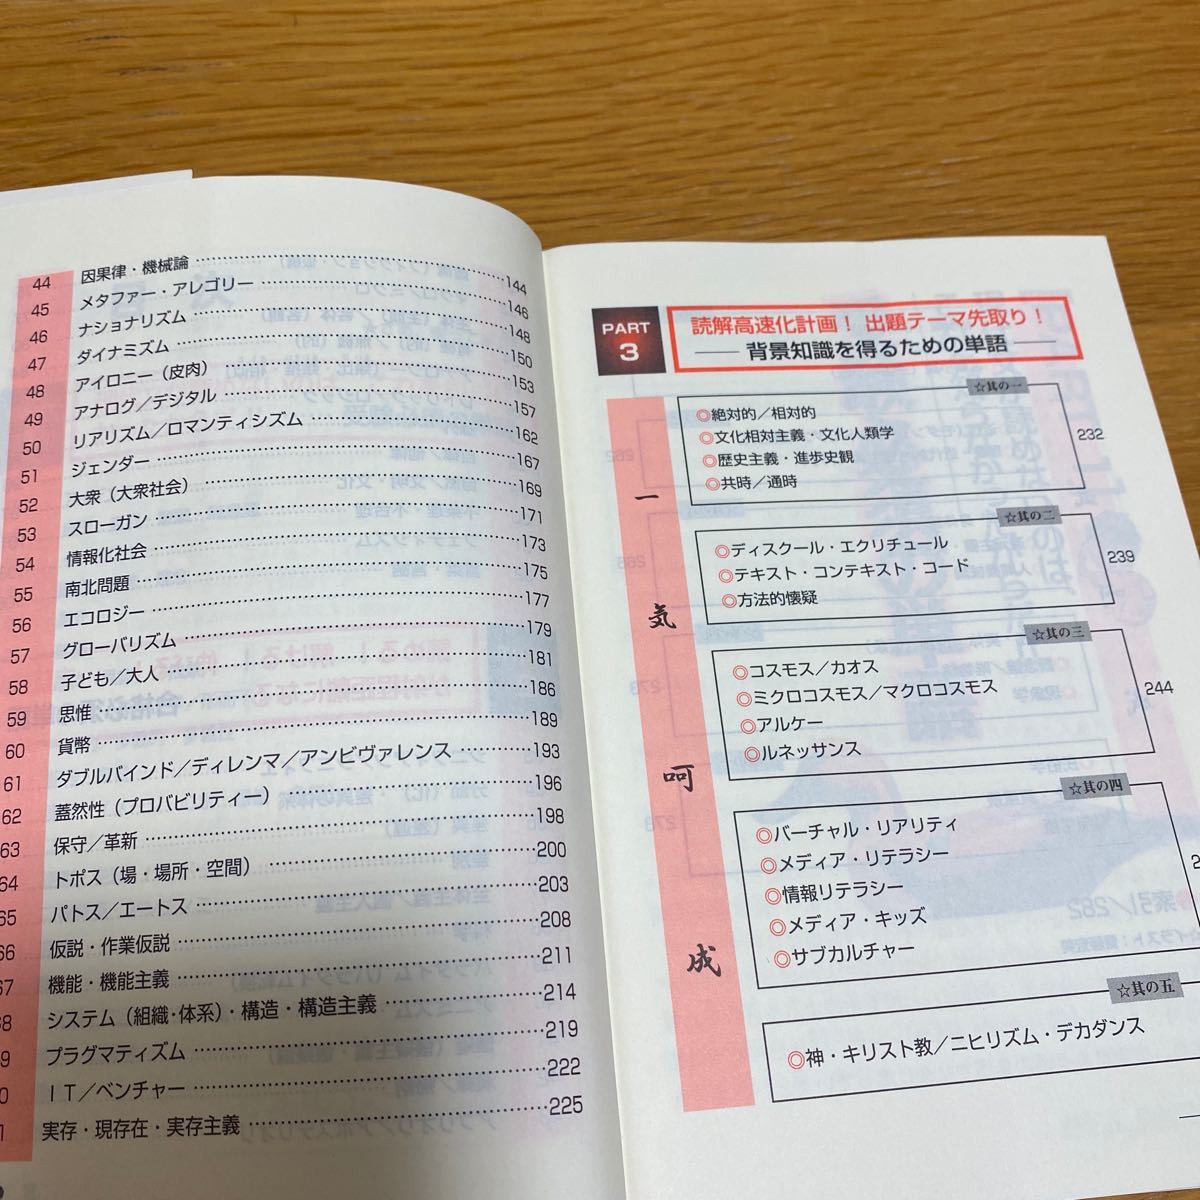 44 因果律・機械論 144
45 メタファー・アレゴリー 146
46 ナショナリズム 148
47 ダイナミズム 150
48 アイロニー（皮肉） 153
49 アナログ／デジタル 157
50 リアリズム／ロマンティシズム 162
51 ジェンダー 167
52 大衆（大衆社会） 169
53 スローガン 171
54 情報化社会 173
55 南北問題 175
56 エコロジー 177
57 グローバリズム 179
58 子ども／大人 181
59 思惟 186
60 貨幣 189
61 ダブルバインド／ディレンマ／アンビヴァレンス 193
62 蓋然性（プロバビリティー） 196
63 保守／革新 198
64 トポス（場・場所・空間） 200
65 パトス／エートス 203
66 仮説・作業仮説 208
67 機能・機能主義 211
68 システム（組織・体系）・構造・構造主義 214
9 プラグマティズム 219
0 ＩＴ／ベンチャー 222
1 実存・現存在・実存主義 225
PART 3
読解高速化計画！ 出題テーマ先取り！
背景知識を得るための単語
一気呵成
☆其の一
◎絶対的／相対的
◎文化相対主義・文化人類学
◎歴史主義・進歩史観
◎共時／通時
232
☆其の二
◎ディスクール・エクリチュール
◎テキスト・コンテキスト・コード
◎方法的懐疑
239
☆其の三
◎コスモス／カオス
◎ミクロコスモス／マクロコスモス
◎アルケー
◎ルネッサンス
244
☆其の四
◎バーチャル・リアリティ
◎メディア・リテラシー
◎情報リテラシー
◎メディア・キッズ
◎サブカルチャー
2
☆其の五
◎神・キリスト教／ニヒリズム・デカダンス